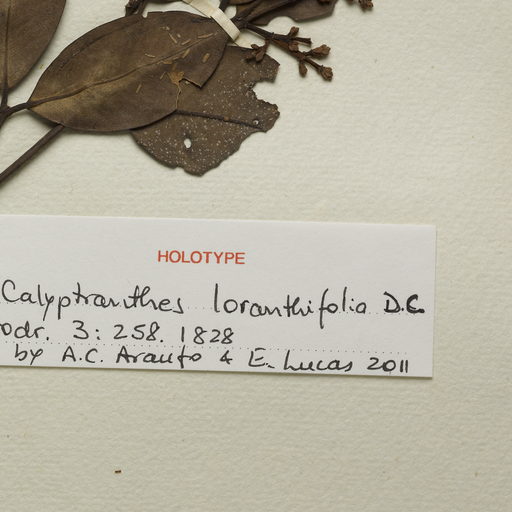 HOLOTYPE
Calyptranthes loranthifolia D.C.
odr. 3: 258. 1828
by A.C. Araujo & E. Lucas 2011